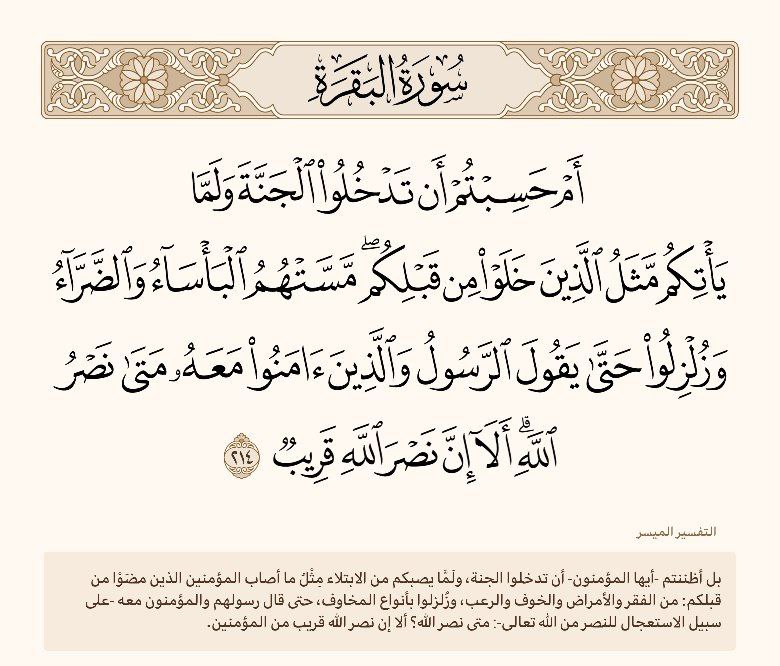 سُورَةُ البَقَرَةِ
أَمۡ حَسِبۡتُمۡ أَن تَدۡخُلُواْ ٱلۡجَنَّةَ وَلَمَّا
يَأۡتِكُم مَّثَلُ ٱلَّذِينَ خَلَوۡاْ مِن قَبۡلِكُمۖ مَّسَّتۡهُمُ ٱلۡبَأۡسَآءُ وَٱلضَّرَّآءُ
وَزُلۡزِلُواْ حَتَّىٰ يَقُولَ ٱلرَّسُولُ وَٱلَّذِينَ ءَامَنُواْ مَعَهُۥ مَتَىٰ نَصۡرُ
ٱللَّهِۗ أَلَآ إِنَّ نَصۡرَ ٱللَّهِ قَرِيبٞ ٢١٤
التفسير الميسر
بل أظننتم -أيها المؤمنون- أن تدخلوا الجنة، ولَمَّا يصبكم من الابتلاء مِثْلُ ما أصاب المؤمنين الذين مضَوْا من
قبلكم: من الفقر والأمراض والخوف والرعب، وزُلزلوا بأنواع المخاوف، حتى قال رسولهم والمؤمنون معه -على
سبيل الاستعجال للنصر من الله تعالى-: متى نصر الله؟ ألا إن نصر الله قريب من المؤمنين.